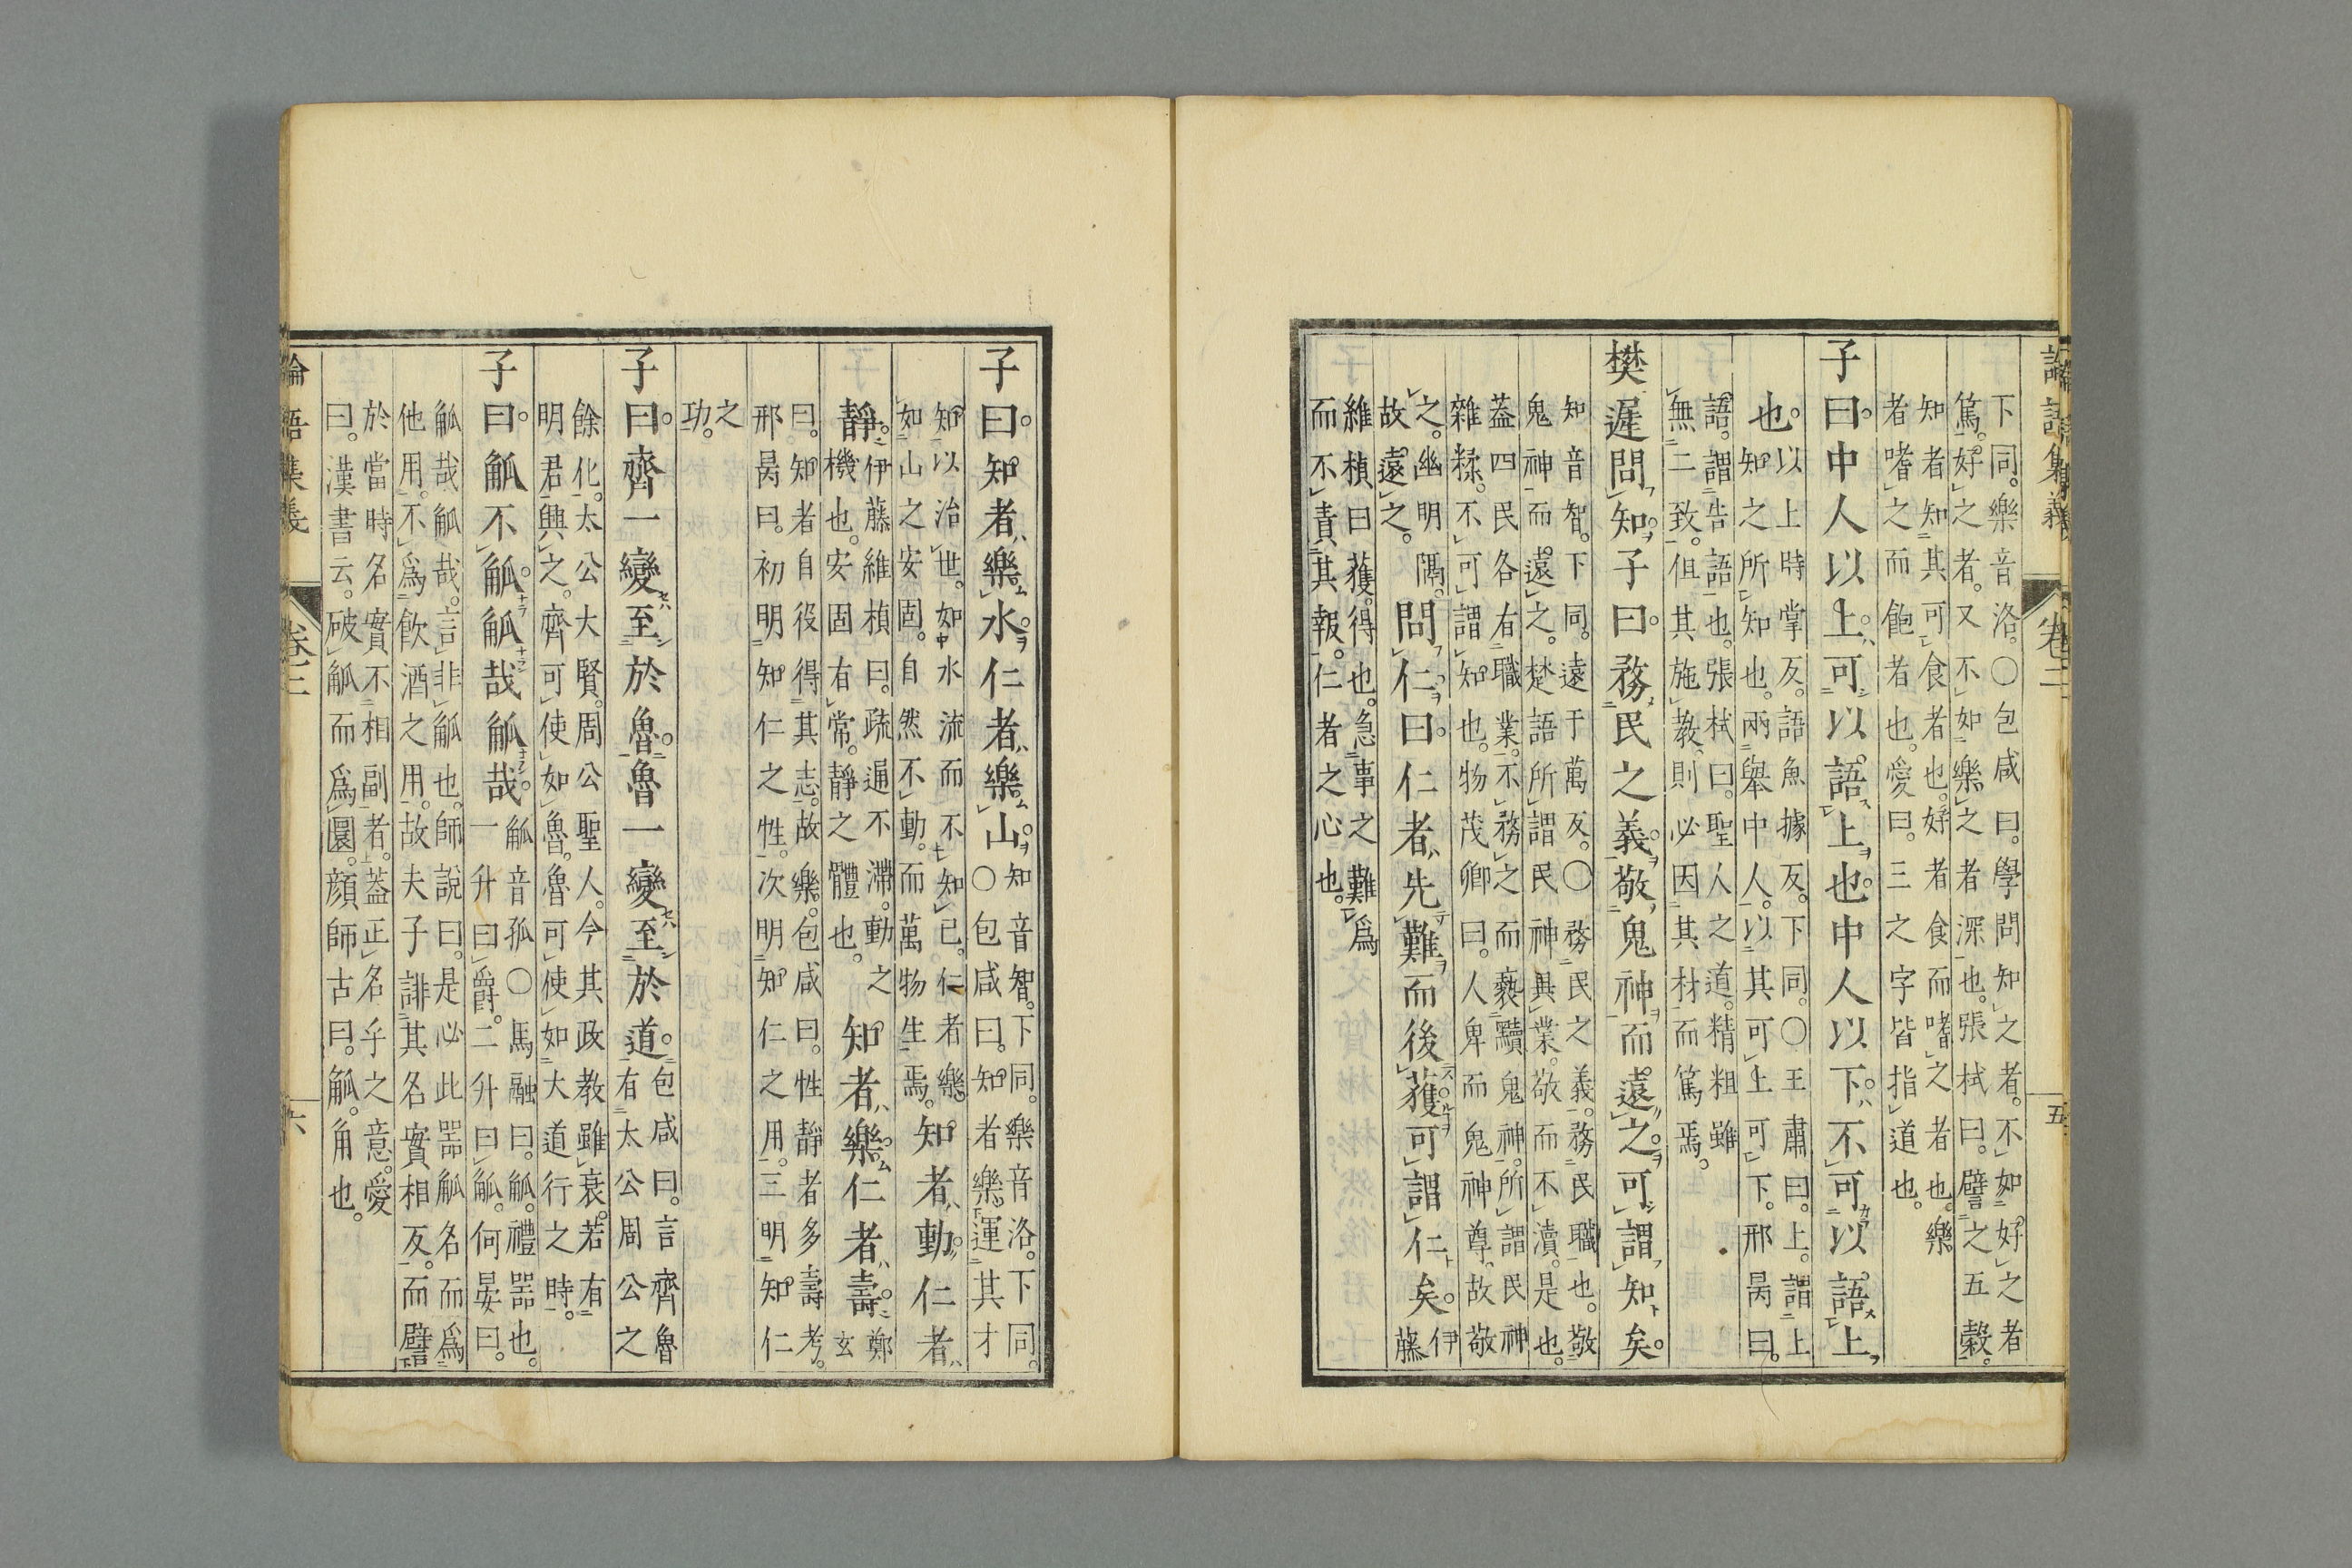 論語集義
卷三
五
下同。樂音洛。○包咸曰。學問知之者。不如好之者
篤。好之者。又不如樂之者深也。張栻曰。譬之五穀。
知者知其可食者也。好者食而嗜之者也。樂
者嗜之而飽者也。愛曰。三之字皆指道也。
子曰。中人以上。可以語上也。中人以下。不可以語上
也。
以上時掌反。語魚據反。下同。○王肅曰。上。謂上
知之所知也。兩舉中人。以其可上可下。邢昺曰。
語。謂告語也。張栻曰。聖人之道。精粗雖
無二致。但其施教。則必因其材而篤焉。
樊遲問知。子曰。務民之義。敬鬼神而遠之。可謂知矣。
知音智。下同。遠于萬反。○務民之義。務民職也。敬
鬼神而遠之。楚語所謂民神異業。敬而不瀆。是也。
蓋四民各有職業。不務之而褻黷鬼神。所謂民神
雜糅。不可謂知也。物茂卿曰。人卑而鬼神尊。故敬
之。幽明隔。
故遠之。
問仁。曰。仁者先難而後獲。可謂仁矣。
伊
藤
維楨曰。獲。得也。急事之難爲
而不責其報。仁者之心也。
子曰。知者樂水。仁者樂山。
知音智。下同。樂音洛。下同。
○包咸曰。知者樂運其才
知以治世。如水流而不知已。仁者樂
如山之安固。自然不動。而萬物生焉。
知者動。仁者
靜。
伊藤維楨曰。疏通不滯。動之
機也。安固有常。靜之體也。
知者樂。仁者壽。
鄭
玄
曰。知者自役得其志。故樂。包咸曰。性靜者多壽考。
邢昺曰。初明知仁之性。次明知仁之用。三明知仁
之
功。
子曰。齊一變至於魯。魯一變至於道。
包咸曰。言齊魯
有太公周公之
餘化。太公大賢。周公聖人。今其政教雖衰。若有
明君興之。齊可使如魯。魯可使如大道行之時。
子曰。觚不觚。觚哉觚哉。
觚音孤○馬融曰。觚。禮器也。
一升曰爵。二升曰觚。何晏曰。
觚哉觚哉。言非觚也。師說曰。是必此器觚名而爲
他用。不爲飲酒之用。故夫子誹其名實相反。而譬
於當時名實不相副者。蓋正名乎之意。愛
曰。漢書云。破觚而爲圜。顏師古曰。觚。角也。
論語集義
卷三
六